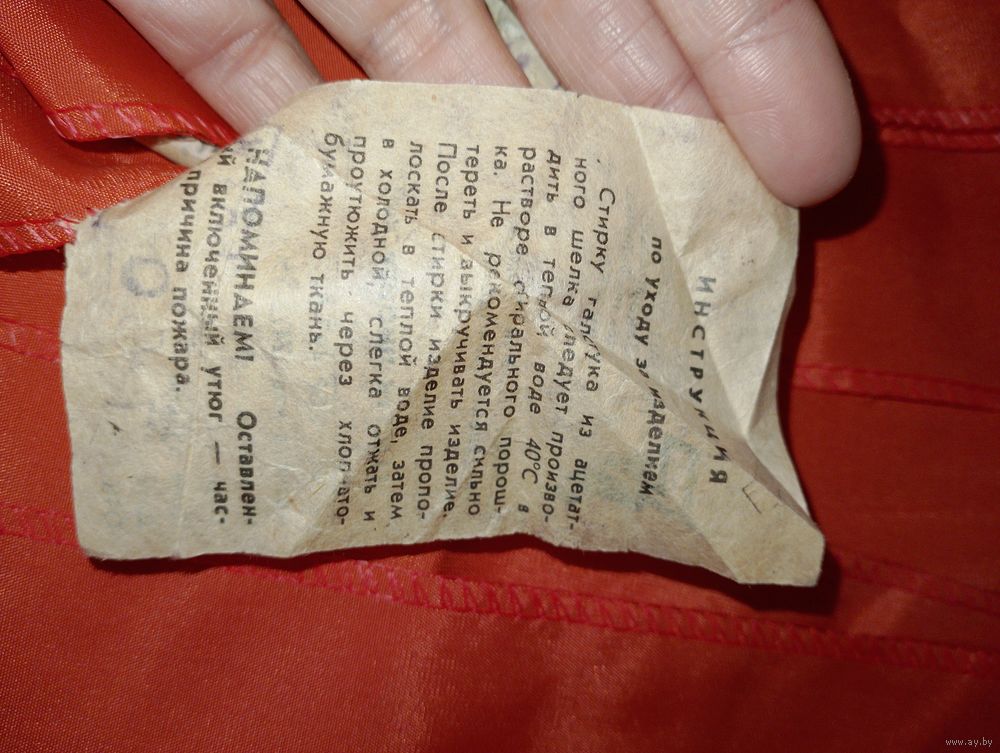 ИНСТРУКЦИЯ
по уходу за изделием
Стирку галстука из ацетат-
ного шелка следует произво-
дить в теплой воде 40°С в
растворе стирального порош-
ка. Не рекомендуется сильно
тереть и выкручивать изделие.
После стирки изделие пропо-
лоскать в теплой воде, затем
в холодной, слегка отжать и
проутюжить через хлопчато-
бумажную ткань.
НАПОМИНАЕМ! Оставлен-
ый включенный утюг — час-
причина пожара.
www.ay.by